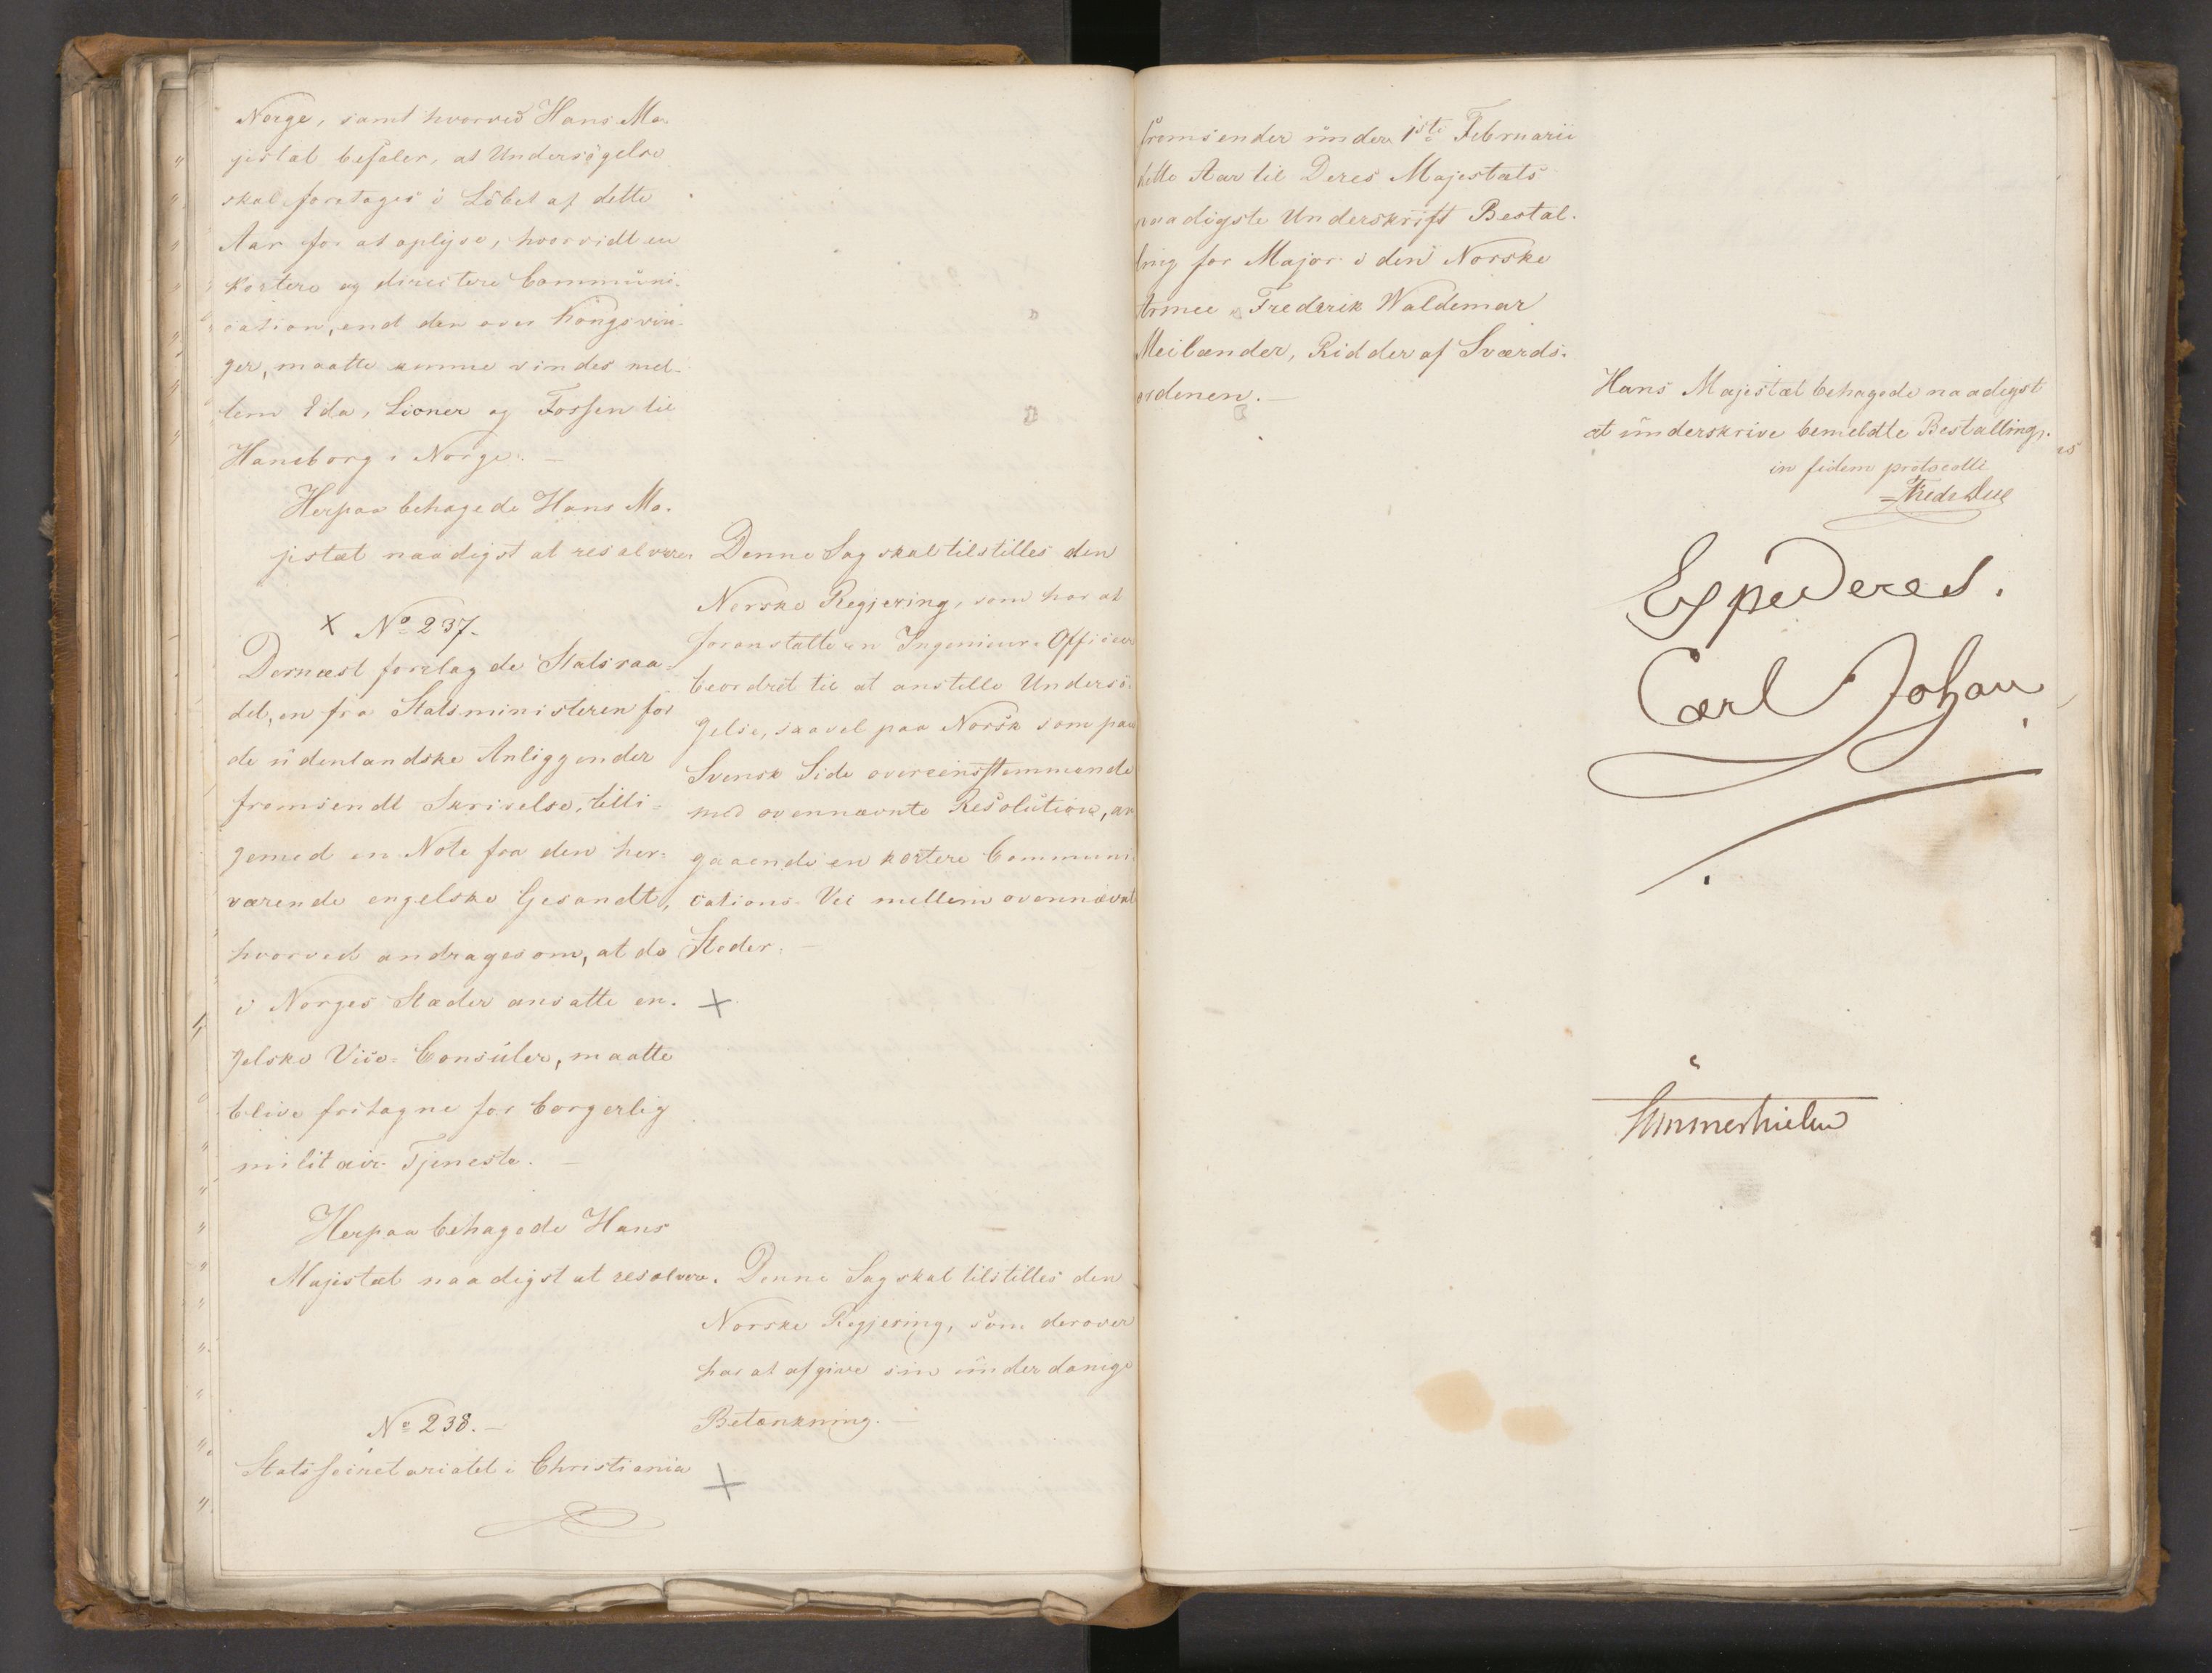 Norge, samt hvorved Hans Ma-
jestæt befaler, at Undersögelse
skal foretages i Löbet af dette
Aar for at oplyse, hvorvidt en
kortere og directere Communi-
cation, end den over Kongsvin-
ger, maatte kunne vindes mel-
lem Eda, Lioner og Fossen til
Haneborg i Norge. —
Herpaa behagede Hans Ma-
jestæt naadigst at resolvere
Denne Sag skal tilstilles den
Norske Regjering, som har at
foranstalte en Ingenieur-Officeer
beordret til at anstille Undersö-
gelse, saavel paa Norsk som paa
Svensk Side overeinsstemmende
med ovennævnte Resolution, an-
gaaende en kortere Communi-
cations-Vei mellem ovennævnte
Steder. —
x No 237.
Dernæst forelagde Statsraa-
det, en fra Statsministeren for
de udenlandske Anliggender
fremsendt Skrivelse, tilli-
gemed en Note fra den her-
værende engelske Gesandt,
hvorved andrages om, at de
i Norges Stæder ansatte en-
gelske Vice-Consuler, maatte
blive fritagne for borgerlig
militair Tjeneste. —
Herpaa behagede Hans
Majestæt naadigst at resolvere.
x
Denne Sag skal tilstilles den
Norske Regjering, som derover
har at afgive sin underdanige
Betænkning. —
No 238. —
Statssecretariatet i Christiania
x
fremsender under 1ste Februarii
dette Aar til Deres Majestæts
naadigste Underskrift Bestal-
ling for Major i den Norske
Armee Frederik Waldemar
Meilænder, Ridder af Sværds-
ordenen. —
Hans Majestæt behagede naadigst
at underskrive bemeldte Bestalling.
in fidem protocolli
Fred. Due
Expederes.
Carl Johan